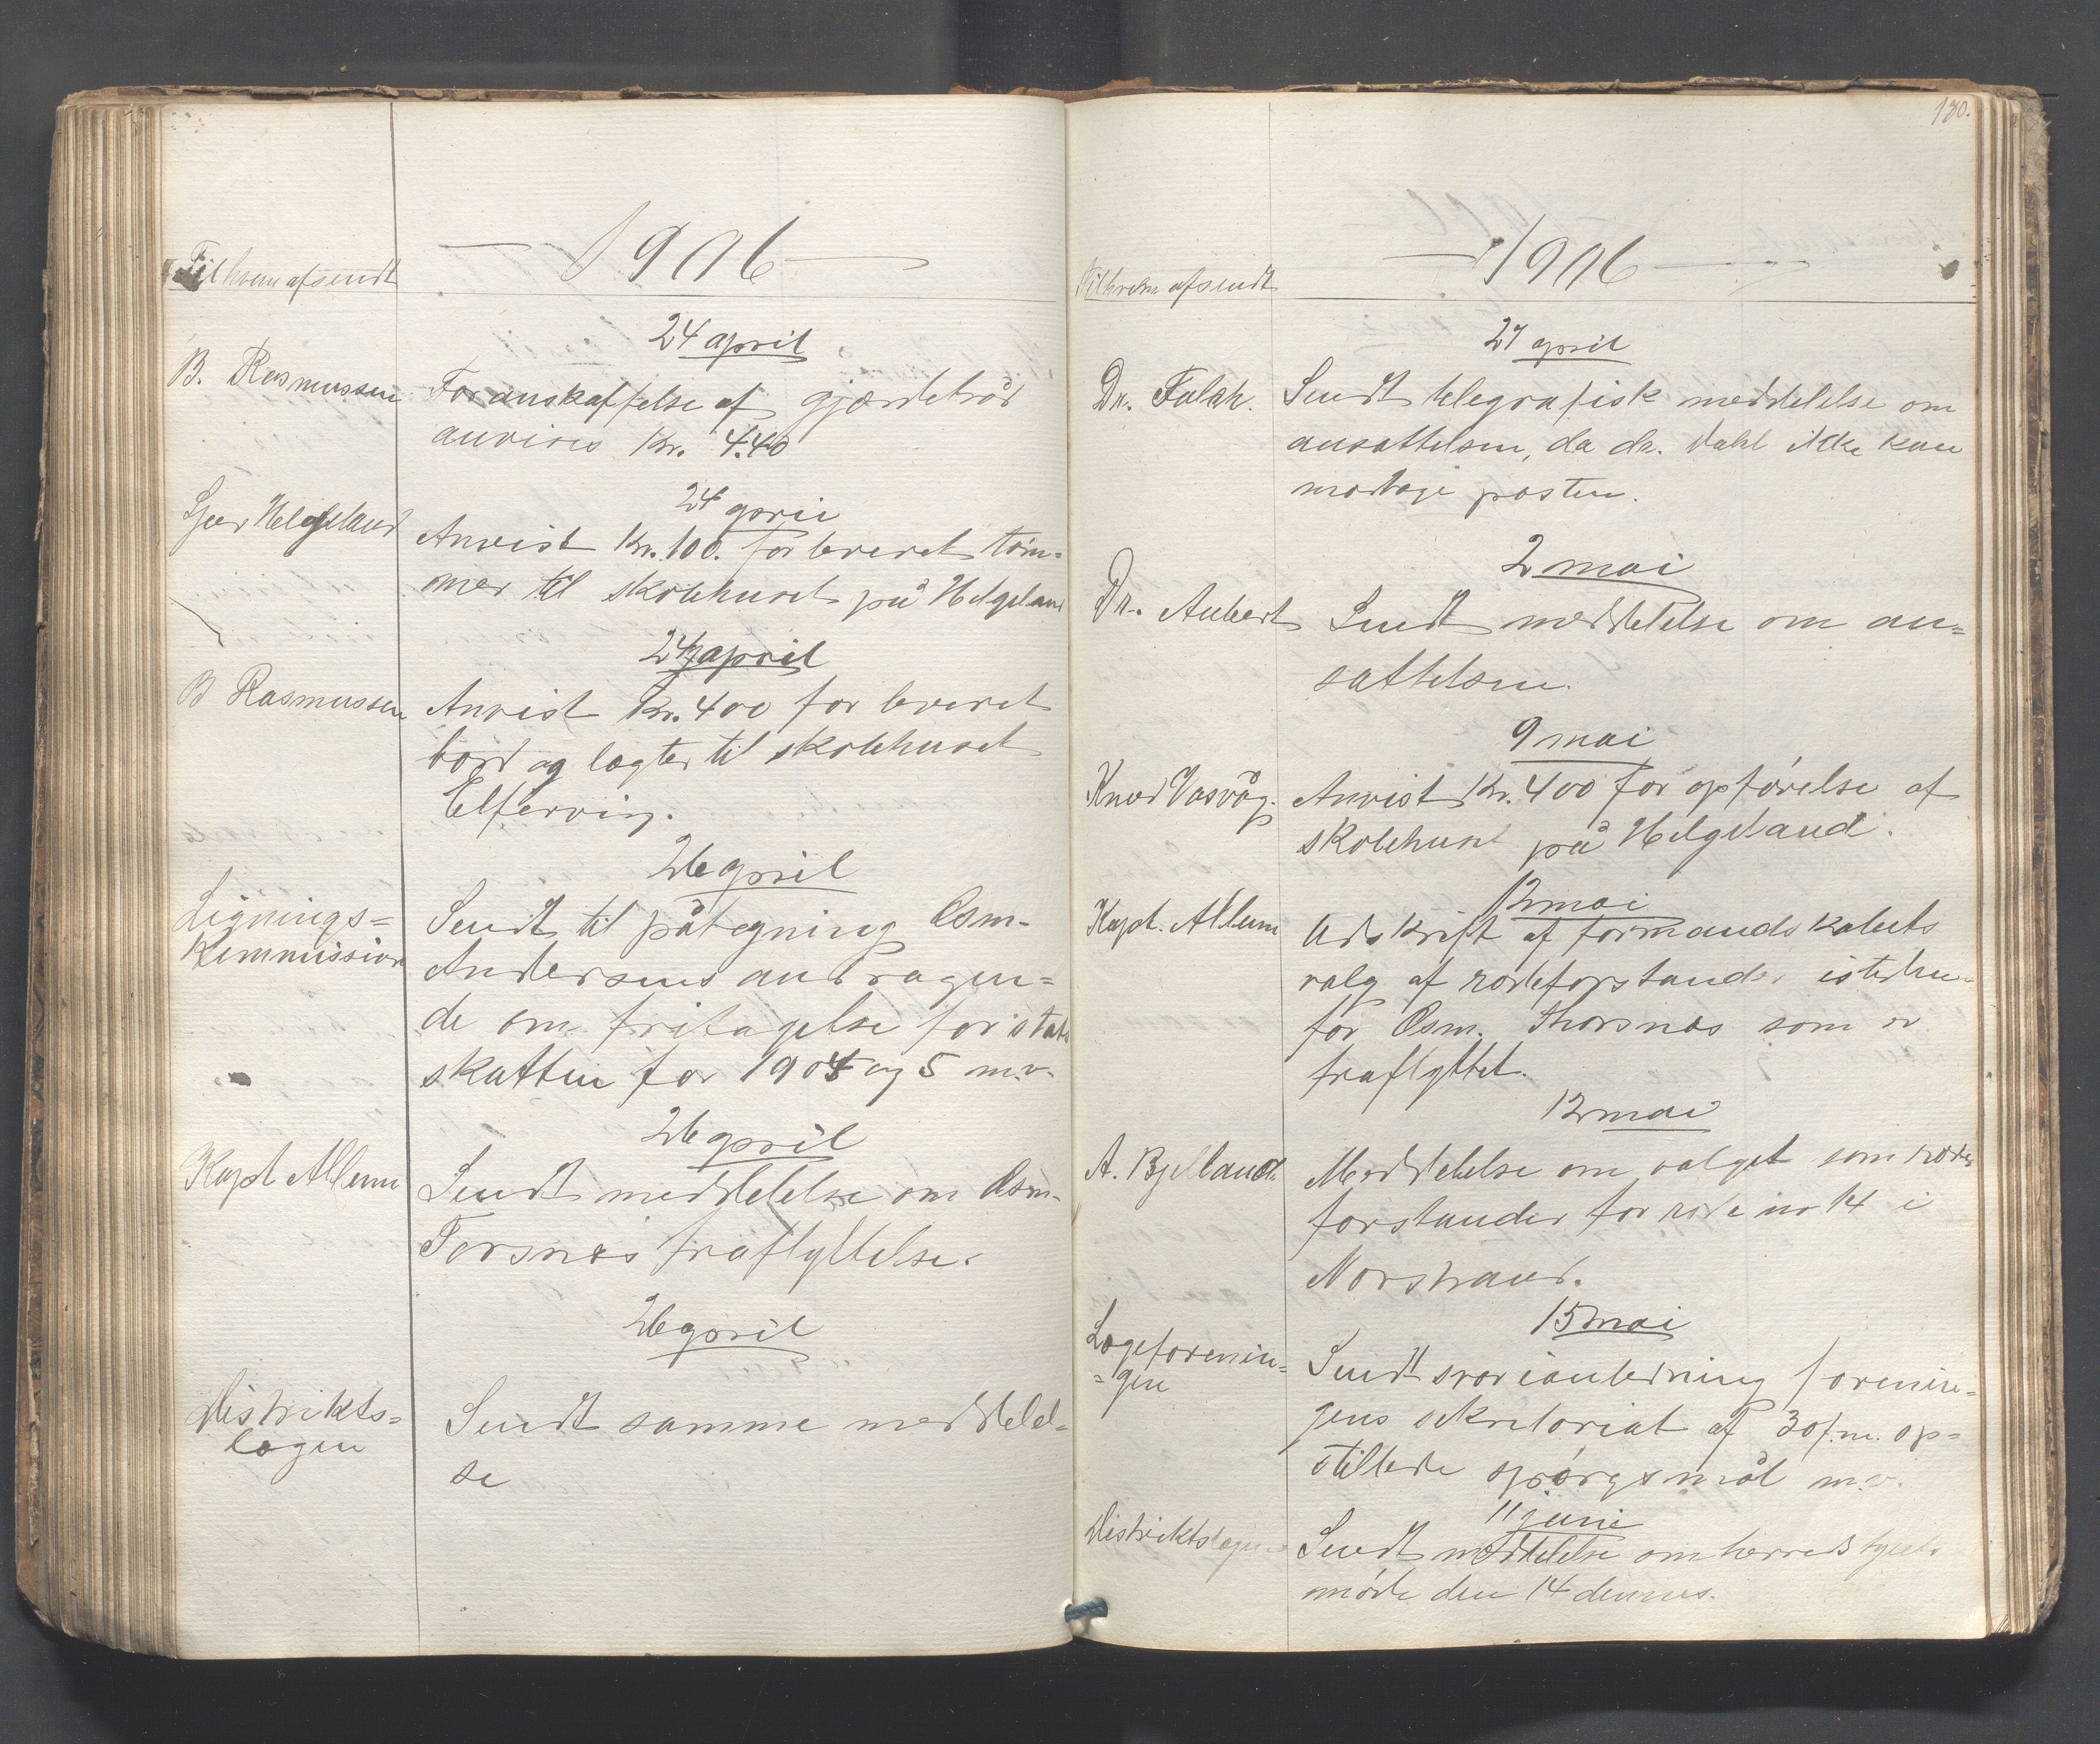 Til hvem afsendt
— 1906 —
24 april
B. Rasmussen
For anskaffelse af gjærdetråd
anvises Kr. 4.40
24 april
Sjur Helgeland
Anvist Kr. 100. for leveret töm-
mer til skolehuset på Helgeland
24 april
B Rasmussen
Anvist Kr. 400 for leveret
bord og lægter til skolehuset
26 april
Lignings-
Kommission
Sendt til påtegning Osm.
Andersens andragen-
de om fritagelse for stats
skatten for 1904 og 5 m.v.
26 april
Kapt Allum
Sendt meddelelse om Osm.
Torsnæs fraflyttelse.
26 april
Distrikts-
lægen
Sendt samme meddelel-
se
180.
Til hvem afsendt
— 1906 —
27 april
Dr. Falch.
Sendt telegrafisk meddelelse om
ansættelsen, da dr. Dahl ikke kan
modtage posten.
2 mai
Dr. Aubert
Sendt meddelelse om an-
sættelsen.
9 mai
Knud Vasvåg.
Anvist Kr. 400 for opförelse af
skolehuset på Helgeland.
12 mai
Kapt. Allum
Udskrift af formandskabets
valg af rodeforstander isteden-
for Osm. Thorsnæs som er
fraflyttet.
12 mai
A. Bjelland.
Meddelelse om valget som rode-
forstander for rode no 14 i
Norstrand.
15 mai
Lægeforenin-
-gen
Sendt svar i anledning forenin-
gens sekretariat af 30 f.m. op-
stillede spörgsmål m.v.
11 juni
Distriktslægen
Sendt meddelelse om herredsstyrets
möde den 14 dennes.